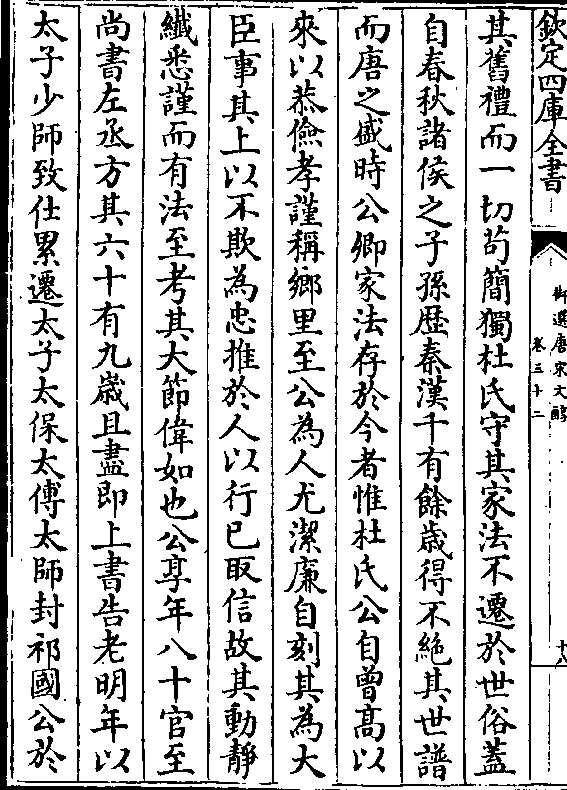 欽定四庫全書
御選唐宋文醇
卷三十二
十八
其舊禮而一切苟簡獨杜氏守其家法不遷於世俗蓋
自春秋諸侯之子孫歴秦漢千有餘歲得不絶其世譜
而唐之盛時公卿家法存於今者惟杜氏公自曾髙以
來以恭儉孝謹稱鄉里至公為人尤潔廉自刻其為大
臣事其上以不欺為忠推於人以行已取信故其動靜
纎悉謹而有法至考其大節偉如也公享年八十官至
尚書左丞方其六十有九歲且盡即上書告老明年以
太子少師致仕累遷太子太保太傅太師封祁國公於